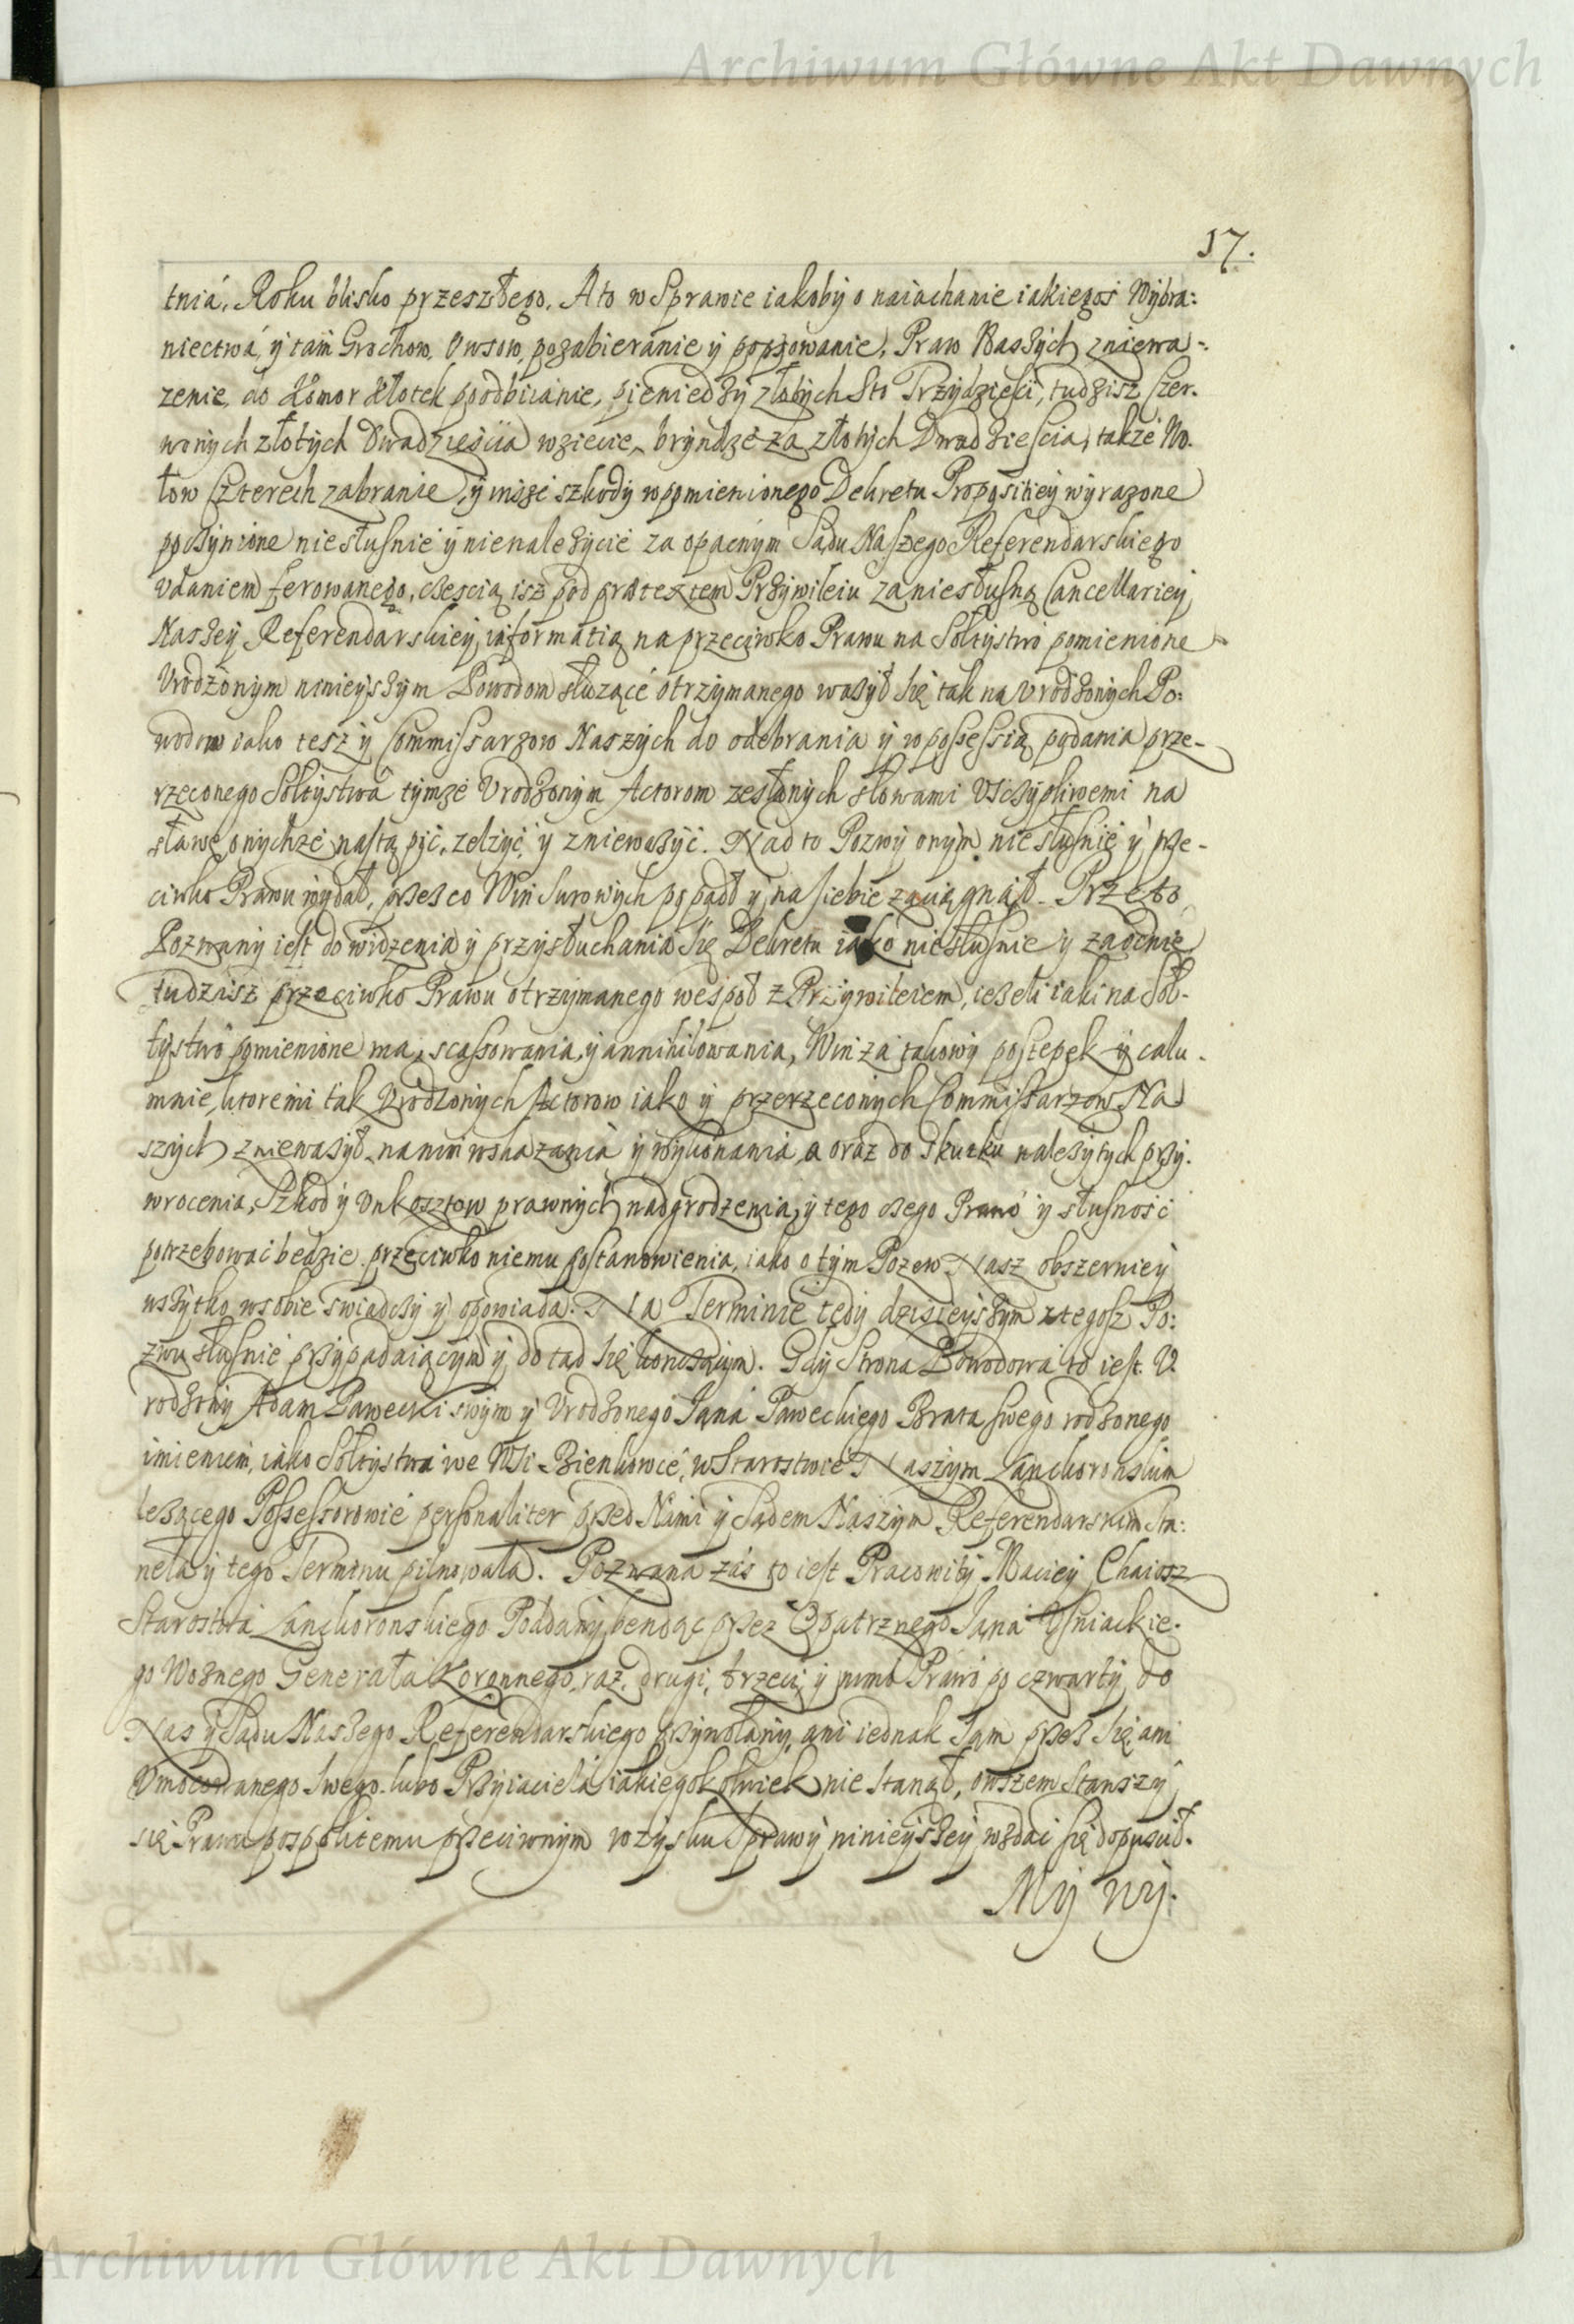 Archiwum Główne Akt Dawnych
17.
tnia, Roku blisko przeszłego. A to w Sprawie iakoby o naiachanie iakiegoś Wybra:
niectwá, y tám Grochow, Owsow, pozabieránie y popsowanie, Praw Naszych zniewa-
zenie, do Komor Kłotek poodbiiánie, pieniedzy złotych Sto Trzydzieści, tudzisz Czer-
wonych złotych Dwadzieściia wziecie, bryndze za złotych Dwadzieścia, także Wo-
łow Czterech zabranie, y insze szkody w pomienionego Dekretu Propositiey wyrazone
poczynione niesłusnie y nienalezycie za opacnym Sądu Naszego Referendarskiego
vdaniem ferowanego, częscią isz pod praetextem Przywileiu za niesłusną Cancellariey
Naszey Referendarskiey, informatią na przeciwko Prawu na Sołtystwo pomienione
Vrodzonym ninieyszym Powodom słuzące otrzymanego wazył się tak na vrodzonych Po:
wodow iako tesz y Commissarzow Naszych do odebrania y w possessią podania prze-
rzeconego Sołtystwa tymze Vrodzonym Actorom zesłanych słowami Vsczypliwemi na
sławę onychze nastąpić, zelzyć, y zniewazyć. Nad to Pozwy onym niesłusnie y prze-
ciwko Prawu wydał, przez co Win Surowych popadł y na siebie zaciągnął. Przeto
Pozwany iest do widzenia y przysłuchania się Dekretu iako niesłusnie y zaocnie
tudzisz przeciwko Prawu otrzymanego wespoł z Przywileiem, iezeli iaki na Soł-
tystwo pomienione ma, scassowania, y annihilowania, Win za takowy postepek y calu-
mnie, ktoremi tak Vrodzonych Actorow iako y przerzeconych Commissarzow Na
szych zniewazył, na nim wskazania y wykonania, a oraz do skutku nalezytych przy-
wrocenia, Szkod y vnkosztow prawnych nadgrodzenia, y tego czego Prawo y słusność
potrzebować bedzie przeciwko niemu postanowienia, iako o tym Pozew Nasz obszerniey
wszytko w sobie swiadczy y opowiada. Na Terminie tedy dzisieyszym z tegosz Po:
zwu słusnie przypadaiącym y do tąd się konczącym. Gdy Strona Powodowa to iest. V
rodzony Adam Pawecki swym y Vrodzonego Jana Paweckiego Brata swego rodzonego
imieniem, iako Sołtystwa we Wsi Bienkowce, w Starostwie Naszym Lanckoronskim
lezącego Possessorowie personaliter przed Nami y Sądem Naszym Referendarskim Sta:
neła y tego Terminu pilnowała. Pozwana zaś to iest Pracowity Maciey Chaiosz
Starostwa Lanckoronskiego Poddany, bendąc przez Opatrznego Jana Vsniackie-
go Woznego Generała Koronnego, raz, drugi, trzeci, y mimo Prawo po czwarty do
Nas y Sądu Naszego Referendarskiego przywołany, ani iednak Sam przez się, ani
Vmocowanego Swego lubo Przyiaciela iakiegokolwiek nie Stanął, owszem Stawszy
się Prawu pospolitemu przeciwnym w zysku Sprawy ninieyszey wzdać się dopuscił.
My wy-
Archiwum Główne Akt Dawnych